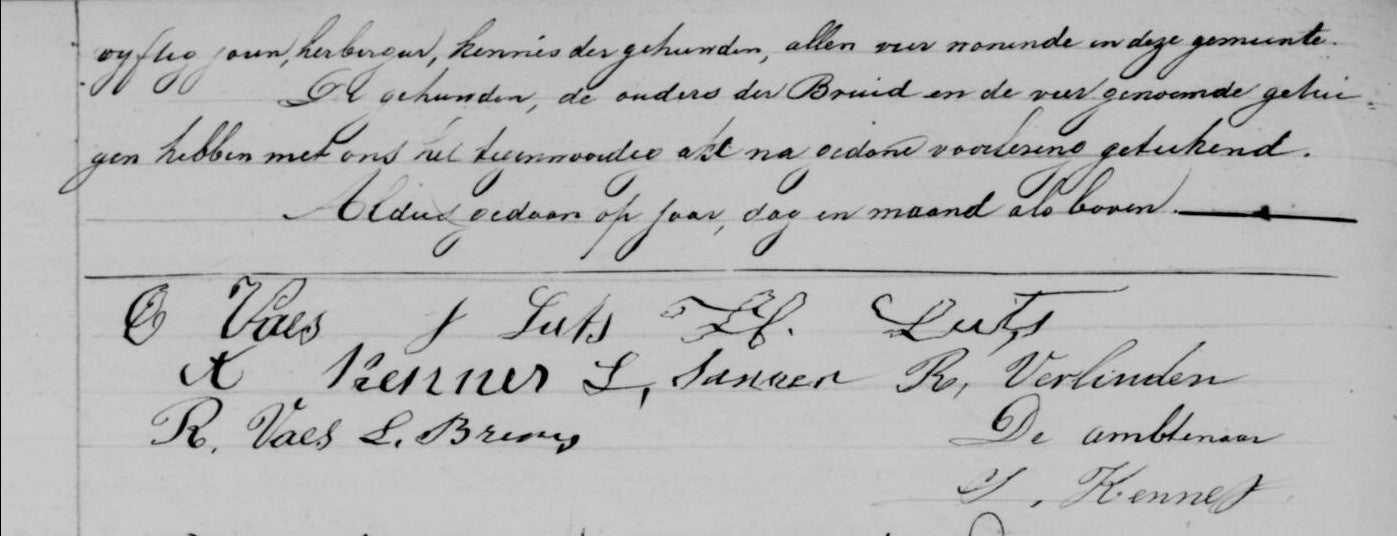 vyftig jaren, herbergier, kennis der gehuwden, allen vier wonende in deze gemeente.
De gehuwden, de ouders der Bruid en de vier genoemde getui-
gen hebben met ons het tegenwoordig akt na gedane voorlezing geteekend.
Aldus gedaan op jaar, dag en maand als boven.
Vaes J Luts H. Luts
A Kenner L, R, Verlinden
R, Vaes L. 
De ambtenaar